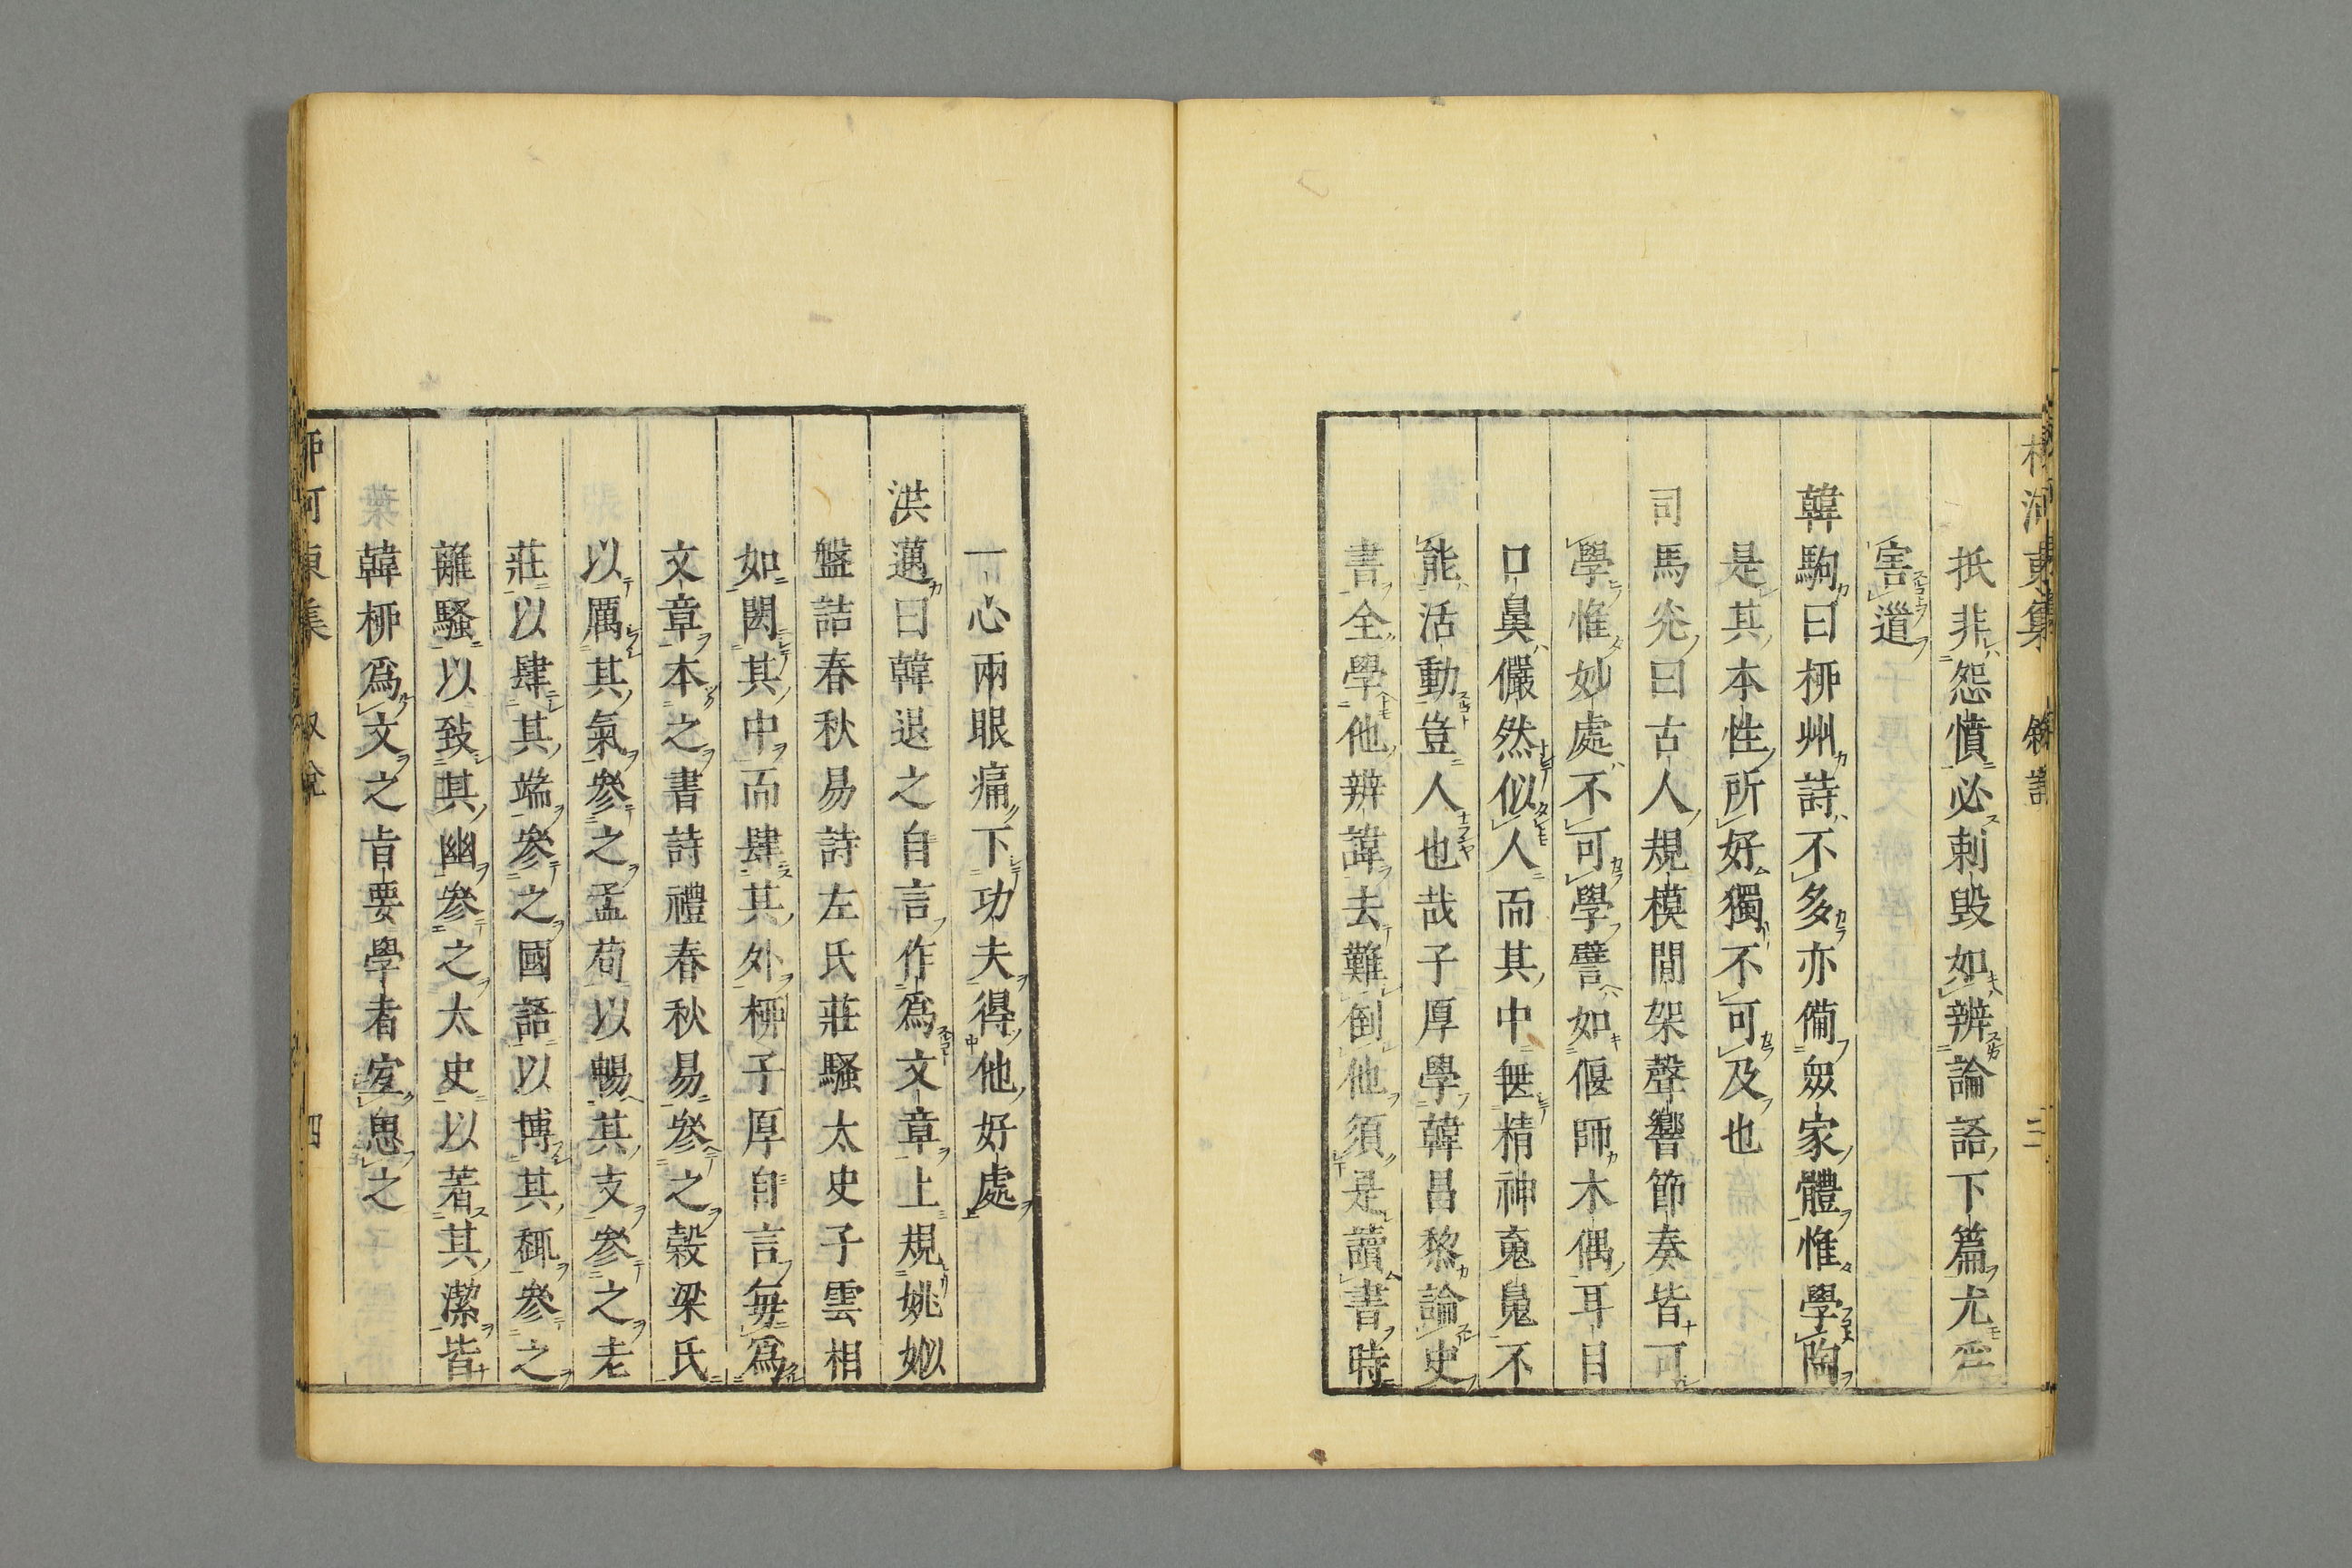 柳河東集 敘說 三
抵非怨憤必刺毀如辨論語下篇尤爲
害道
韓駒曰柳州詩不多亦備衆家體惟學陶
是其本性所好獨不可及也
司馬光曰古人規模間架聲響節奏皆可
學惟妙處不可學譬如偃師木偶耳目
口鼻儼然似人而其中無精神魂魄不
能活動豈人也哉子厚學韓昌黎論史
書全學他辨諱去難倒他須是讀書時
一心兩眼痛下功夫得他好處
洪邁曰韓退之自言作爲文章上規姚姒
盤詰春秋易詩左氏莊騷太史子雲相
如閎其中而肆其外柳子厚自言每爲
文章本之書詩禮春秋易參之穀梁氏
以厲其氣參之孟荀以暢其支參之老
莊以肆其端參之國語以博其趣參之
離騷以致其幽參之太史以著其潔皆
韓柳爲文之旨要學者宜思之
柳河東集 叙說 四